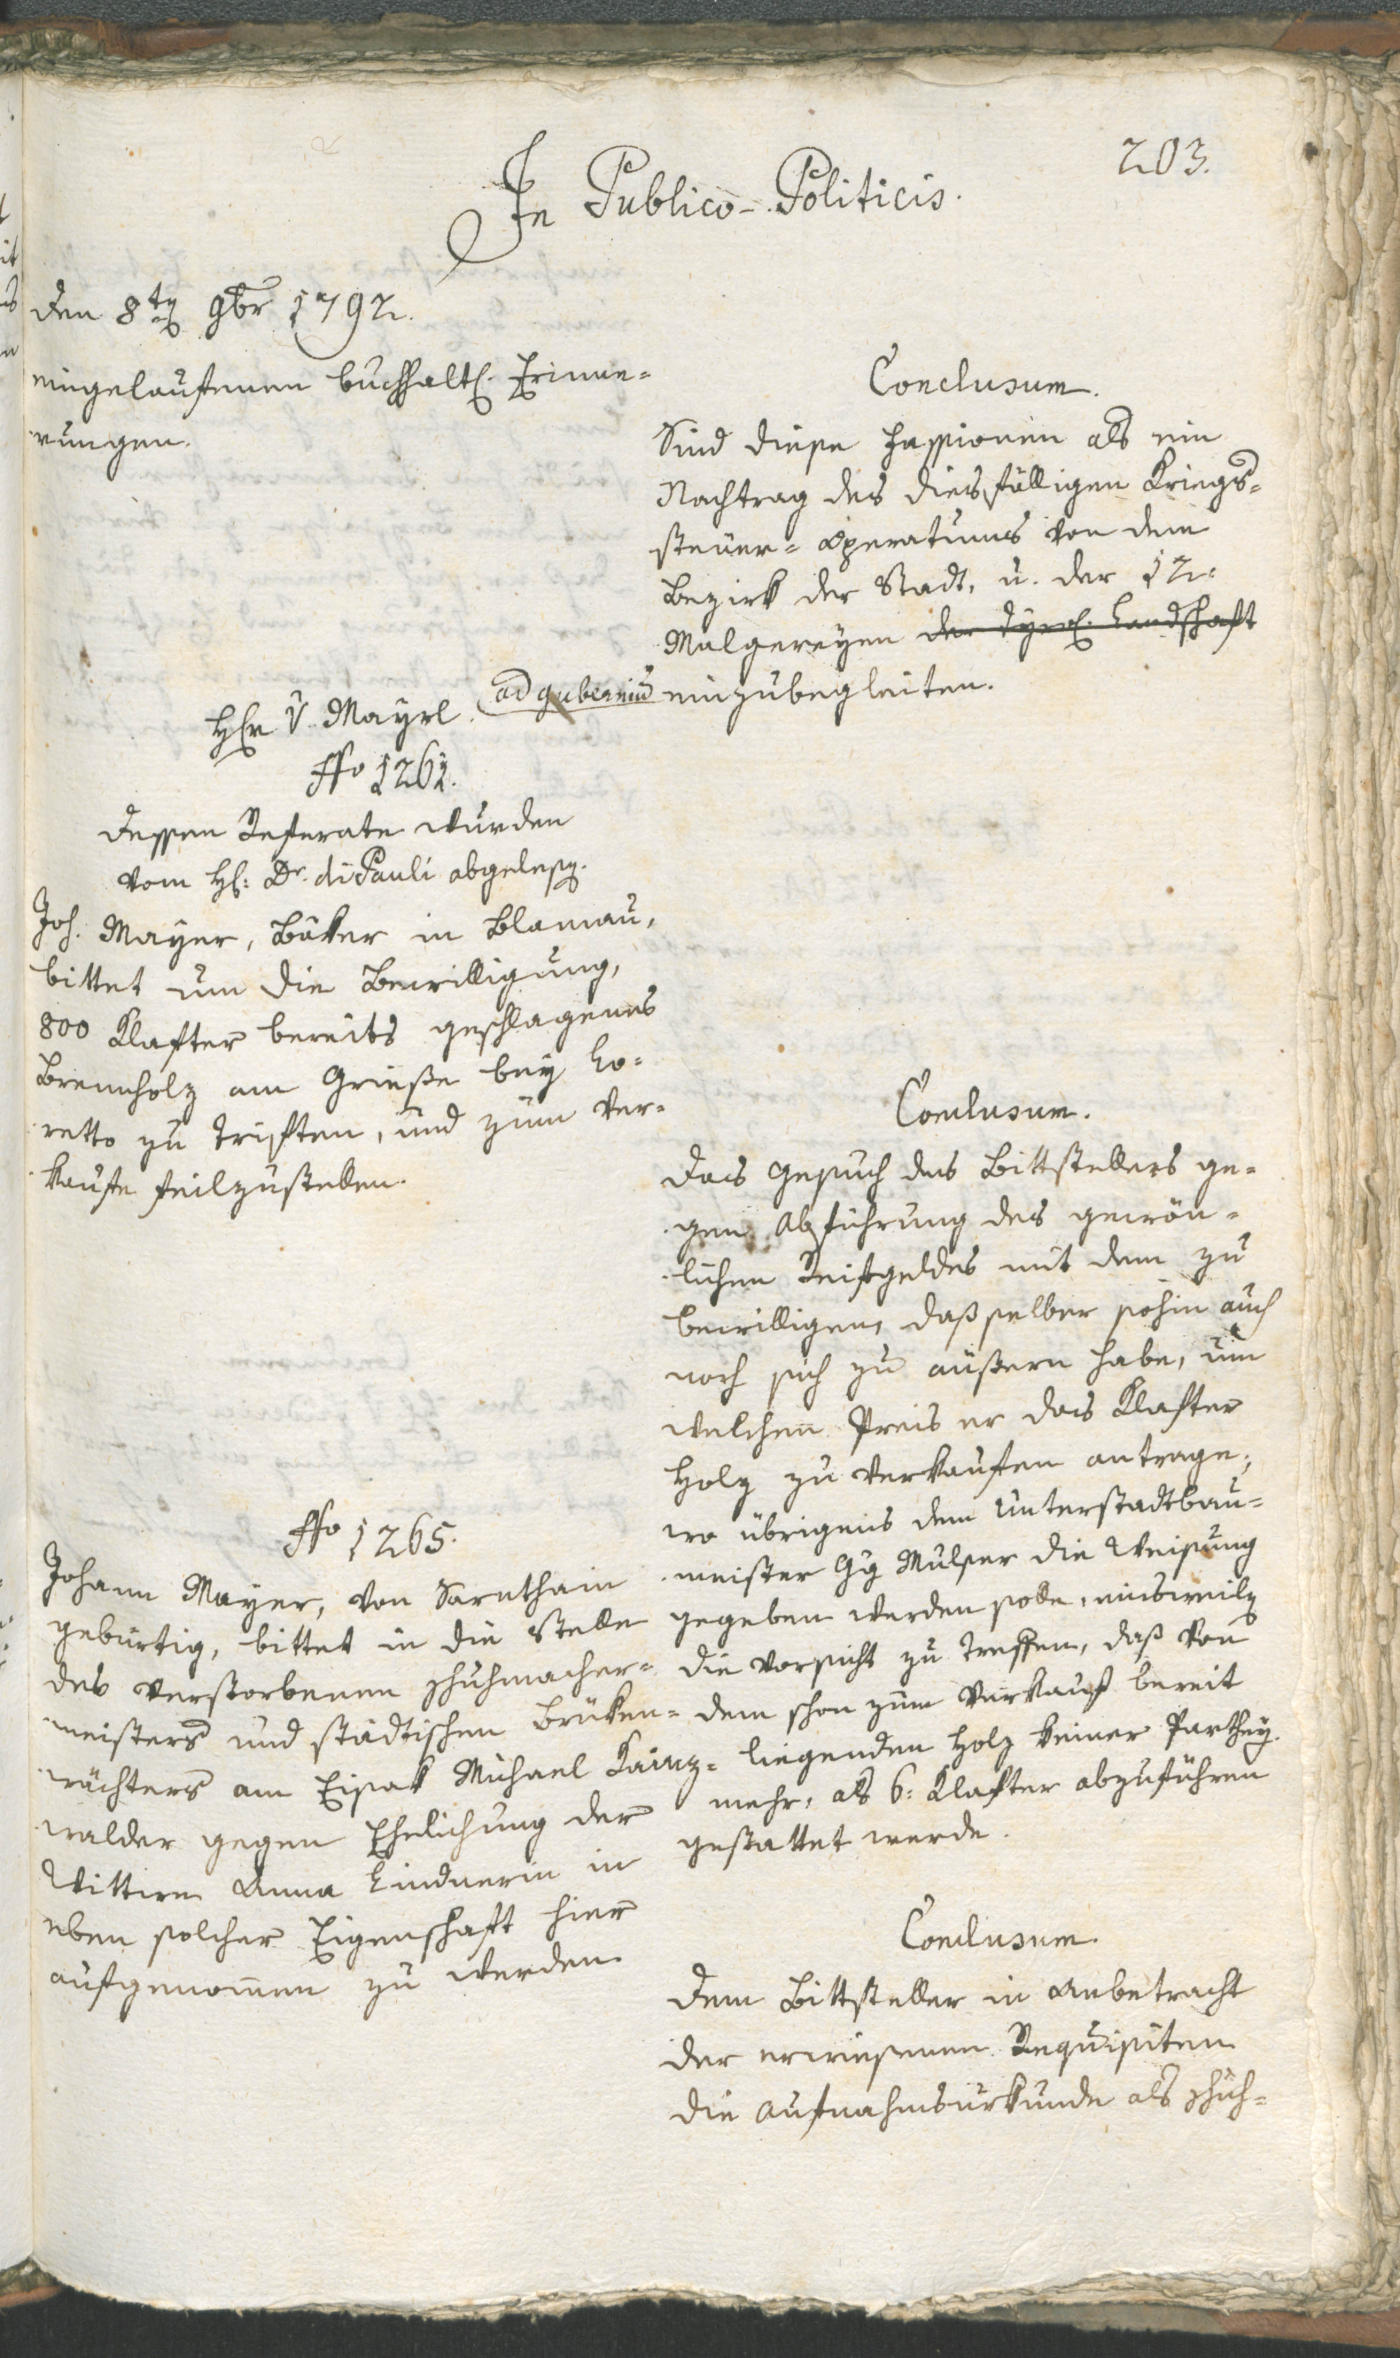 203.
In Publico-Politicis.
den 8tn 9br 1792.
eingelaufenen buchhaltl. Erinne-
rungen.
Conclusum.
Sind diese Fassionen als ein
Nachtrag des diesfälligen Kriegs-
steuer-operatums von dem
Bezirk der Stadt, u. der 12.
Malgereyen der Tyrol. Landschaft
ad gubernium einzubegleiten.
Hr v Mayrl.
No 1261.
Dessen Referate wurden
vom H: Dr. di Pauli abgelesen.
Joh. Mayer, Bäker in Blamau,
bittet um die Bewilligung,
800 Klafter bereits geschlagenes
Brennholz am Grieße bey Lo-
retto zu triften, und zum Ver-
kaufe feilzustellen.
Conclusum.
Das Gesuch des Bittstellers ge-
gen Abführung des gewön-
lichen Reifgeldes mit dem zu
bewilligen, daß selber sohin auch
noch sich zu äußern habe, um
welchen Preis er das Klafter
Holz zu verkaufen antrage;
wo übrigens dem Unterstadtbau-
meister Gg Mulser die Weisung
gegeben werden solle, einsweiln
die Vorsicht zu treffen, daß von
dem schon zum Verkauf bereit
liegenden Holz keiner Parthey
mehr, als 6: Klafter abzuführen
gestattet werde.
No 1265.
Johann Mayer, von Sarnthain
gebürtig, bittet in die Stelle
des verstorbenen Schuhmacher-
meisters und städtischen Brüken-
wächters am Eisak Michael Kainz-
walder gegen Ehelichung der
Wittwe Anna Lindnerin in
eben solcher Eigenschaft hier
aufgenommen zu werden.
Conclusum.
Dem Bittsteller in Anbetracht
der erwiesenen Requisiten
die Aufnahmsurkunde als Schuh-